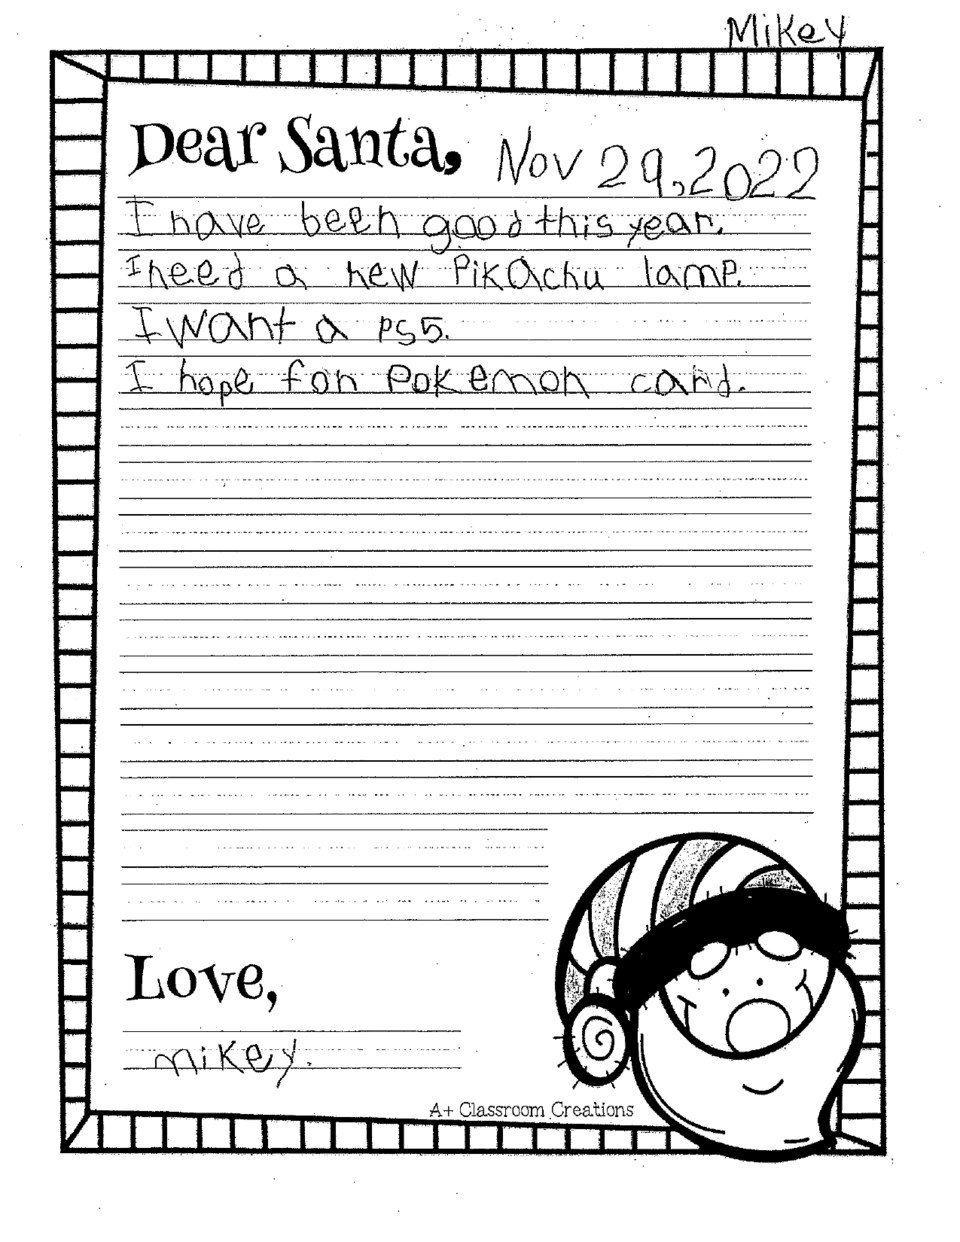 Mikey
Dear Santa, Nov 29, 2022
I have been good this year.
I need a new Pikachu lamp.
I want a PS5.
I hope for Pokemon card.
Love,
mikey.
A+ Classroom Creations